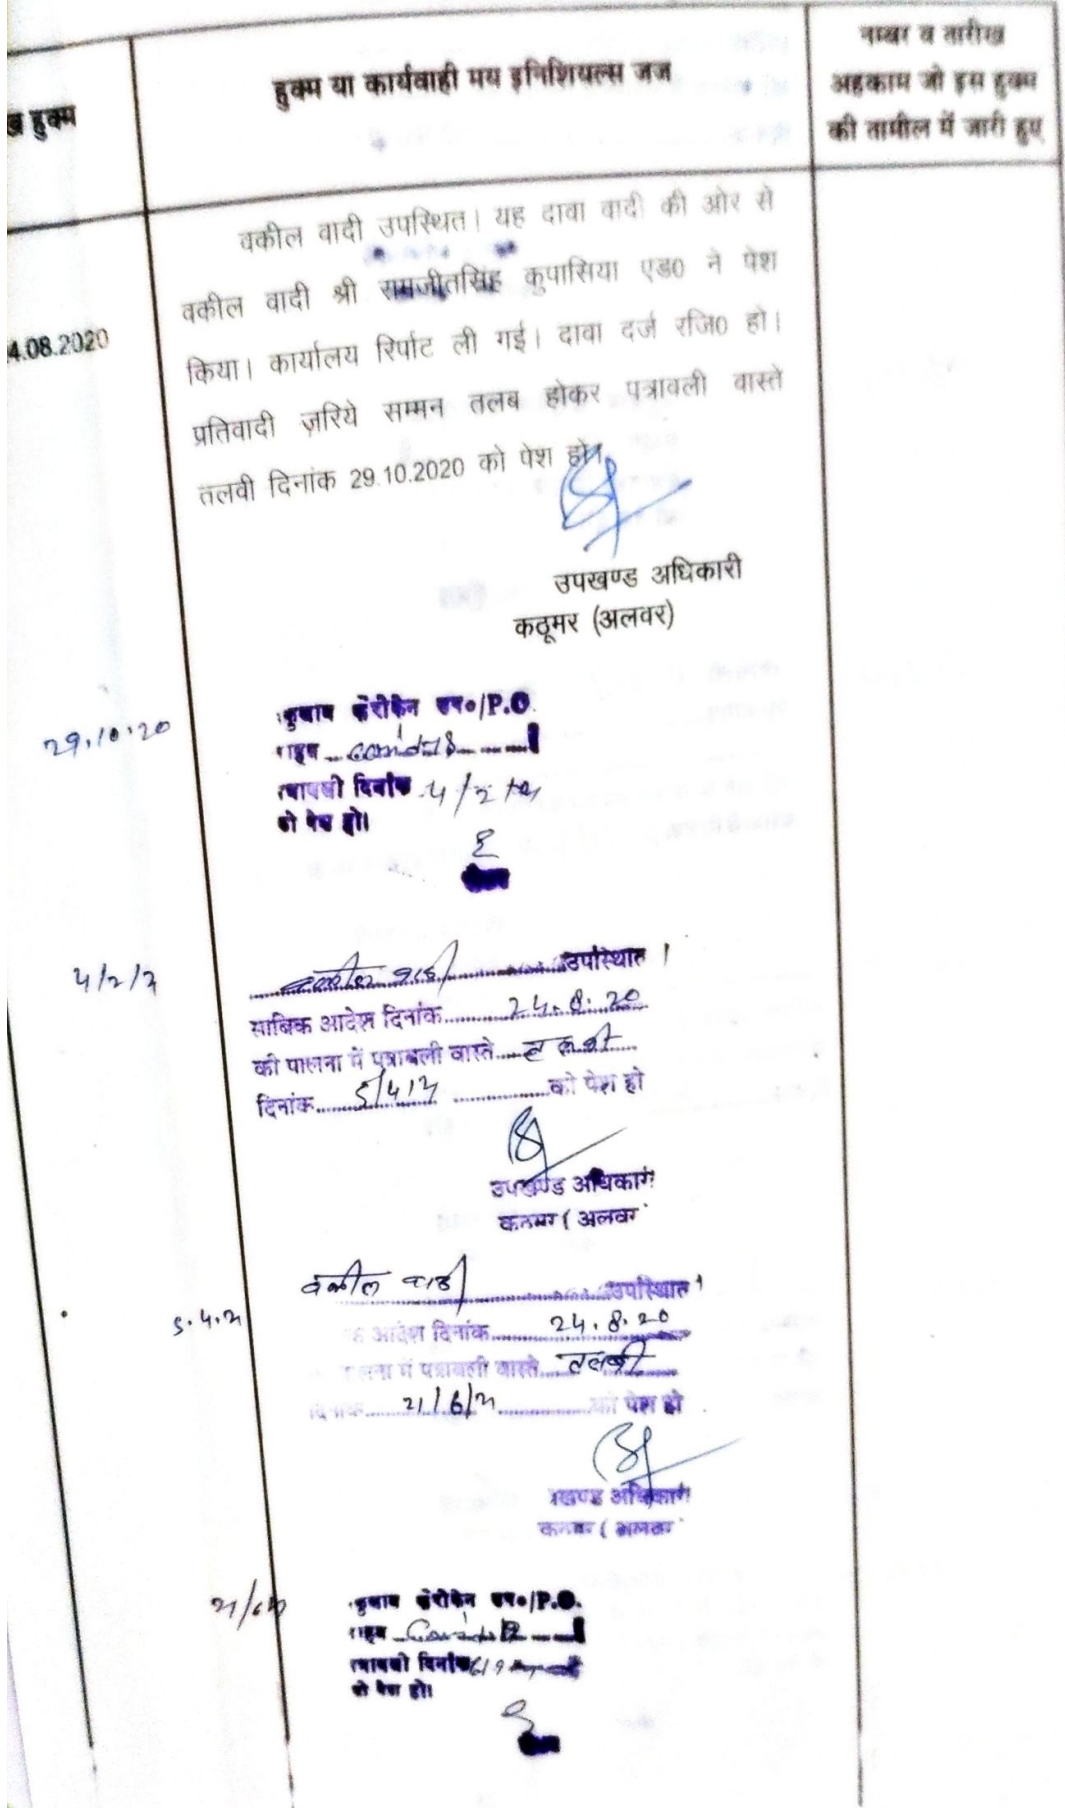 हुक्म
हुक्म या कार्यवाही मय इनिशियल्स जज
नम्बर व तारीख
अहकाम जो इस हुक्म
की तामील में जारी हुए
4.08.2020
वकील वादी उपस्थित। यह दावा वादी की ओर से
वकील वादी श्री रामजीतसिंह कुपासिया एड0 ने पेश
किया। कार्यालय रिर्पाट ली गई। दावा दर्ज रजि0 हो।
प्रतिवादी ज़रिये सम्मन तलब होकर पत्रावली वास्ते
तलवी दिनांक 29.10.2020 को पेश हो।
उपखण्ड अधिकारी
कठूमर (अलवर)
29.10.20
P.O.
दिनांक 4/2/21
को पेश हो।
4/2/21
वकील वादी उपस्थित।
साबिक आदेश दिनांक 24.8.20
की पालना में पत्रावली वास्ते तलबी
दिनांक 5/4/21 को पेश हो
उपखण्ड अधिकारी
कठूमर (अलवर
5.4.21
वकील वादी उपस्थित
आदेश दिनांक 24.8.20
में पत्रावली वास्ते तलबी
दिनांक 21/6/21 को पेश हो
खण्ड अधिकारी
कठूमर (अलवर
P.O.
दिनांक
को पेश हो।